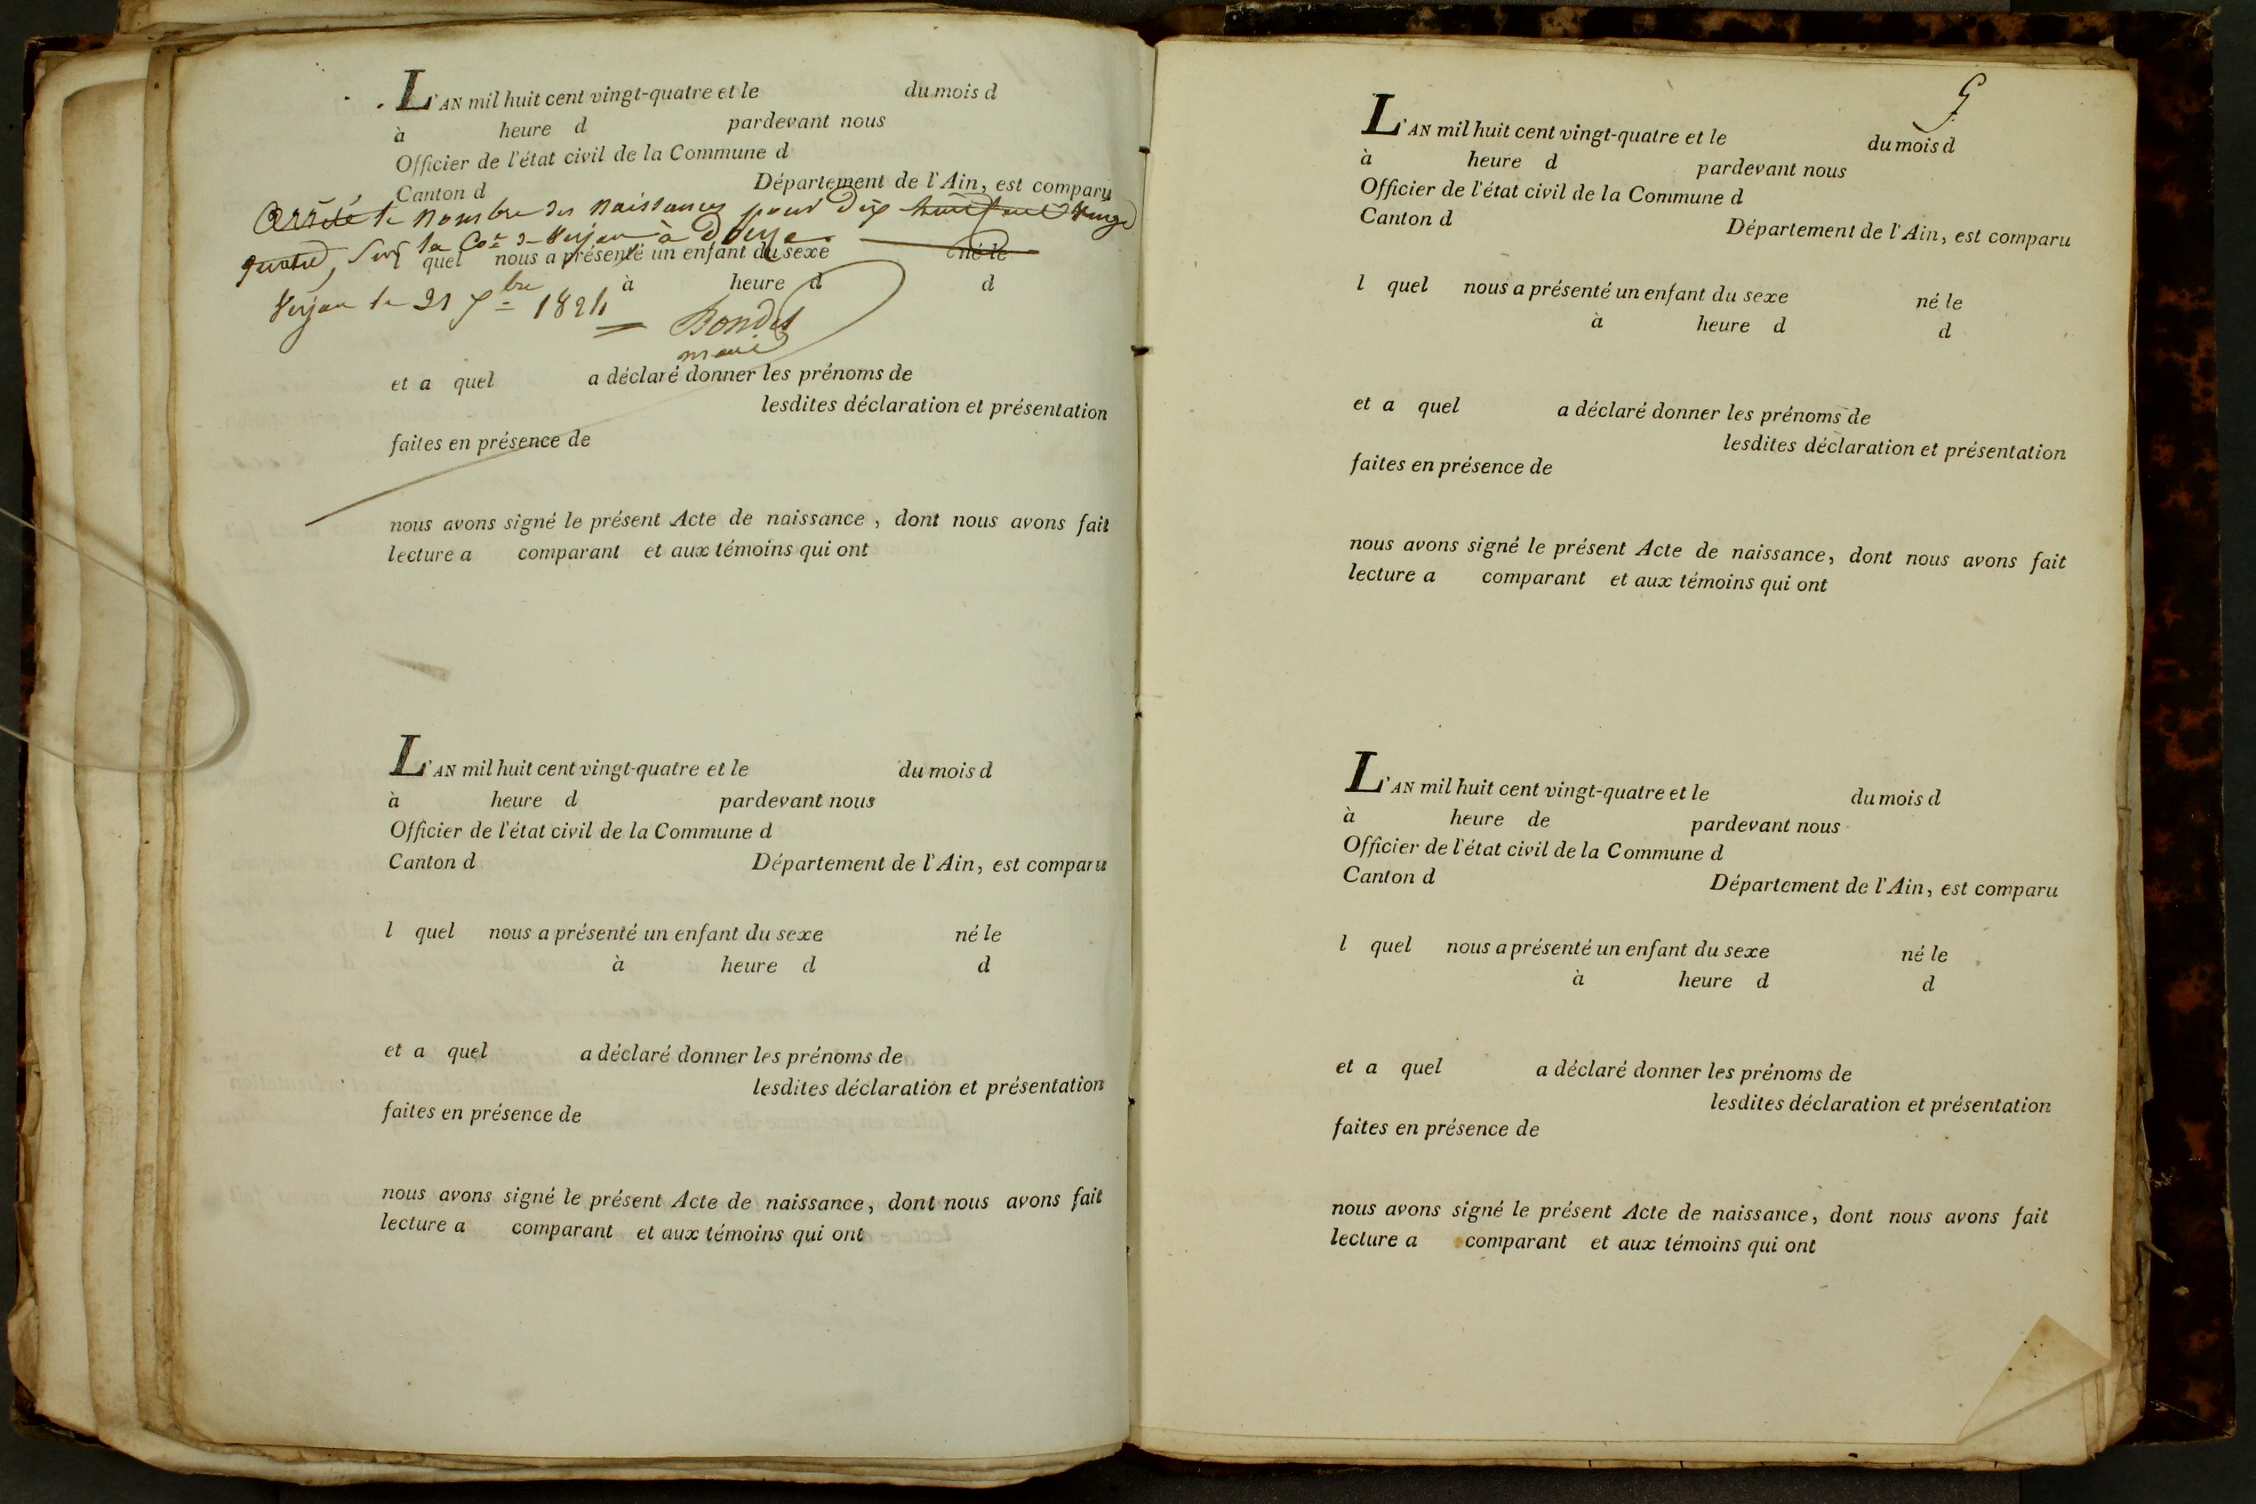 L'AN mil huit cent vingt-quatre et le du mois d
à heure d pardevant nous
Officier de l'état civil de la Commune d
Canton d Département de l'Ain, est comparu
Arrêté le nombre des Naissances pour Dix huit cent Vingt
quatre, Sur la Cne de Verjon à Douze.
quel nous a présenté un enfant du sexe né le
à heure d d
Verjon le 31 Xbre 1824
Bondet
maire
et a quel a déclaré donner les prénoms de
lesdites déclaration et présentation
faites en présence de
nous avons signé le présent Acte de naissance, dont nous avons fait
lecture a comparant et aux témoins qui ont
L'AN mil huit cent vingt-quatre et le du mois d
à heure d pardevant nous
Officier de l'état civil de la Commune d
Canton d Département de l'Ain, est comparu
l quel nous a présenté un enfant du sexe né le
à heure d d
et a quel a déclaré donner les prénoms de
lesdites déclaration et présentation
faites en présence de
nous avons signé le présent Acte de naissance, dont nous avons fait
lecture a comparant et aux témoins qui ont
L'AN mil huit cent vingt-quatre et le du mois d
à heure d pardevant nous
Officier de l'état civil de la Commune d
Canton d Département de l'Ain, est comparu
l quel nous a présenté un enfant du sexe né le
à heure d d
et a quel a déclaré donner les prénoms de
lesdites déclaration et présentation
faites en présence de
nous avons signé le présent Acte de naissance, dont nous avons fait
lecture a comparant et aux témoins qui ont
L'AN mil huit cent vingt-quatre et le du mois d
à heure de pardevant nous
Officier de l'état civil de la Commune d
Canton d Département de l'Ain, est comparu
l quel nous a présenté un enfant du sexe né le
à heure d d
et a quel a déclaré donner les prénoms de
lesdites déclaration et présentation
faites en présence de
nous avons signé le présent Acte de naissance, dont nous avons fait
lecture a comparant et aux témoins qui ont